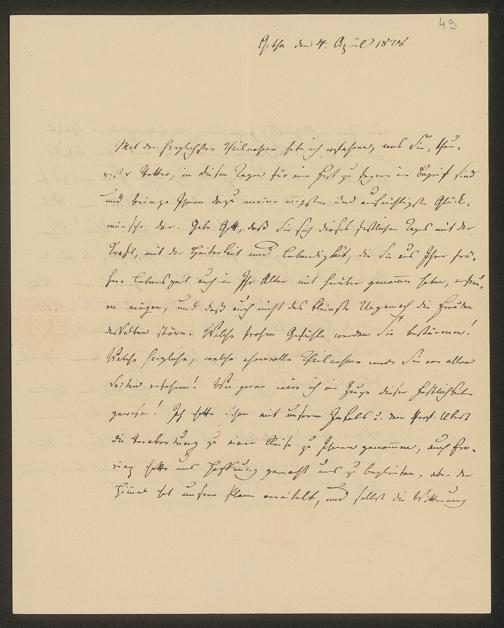 49
Gotha den 4. April 1826
Mit der herzlichsten Theilnahme habe ich erfahren, was Sie, theu-
rer Vetter, in diesen Tagen für ein Fest zu feyern im Begriff sind
und bringe Ihnen dazu meine innigsten und aufrichtigsten Glück-
wünsche dar. Gebe Gott, daß Sie sich dieses festlichen Tages mit der
Kraft, mit der Heiterkeit und Lebendigkeit, die Sie aus Ihrer frü-
hern Lebenszeit auch in Ihr Alter mit hinüber genommen haben, erfreu-
en mögen, und daß auch nicht das kleinste Ungemach die Freuden
desselben störe. Welche frohen Gefühle werden Sie bestürmen!
Welche herzliche, welche ehrenvolle Theilnahme werden Sie von allen
Seiten erfahren! Wie gern wäre ich ein Zeuge dieser Festlichkeiten
gewesen! Ich hatte schon mit unserm Jacobs u. dem Prof. Ukert
die Verabredung zu einer Reise zu Ihnen genommen, auch
hatte uns Hoffnung gemacht uns zu begleiten, aber der
Himmel hat unsern Plan vereitelt, und selbst die Witterung